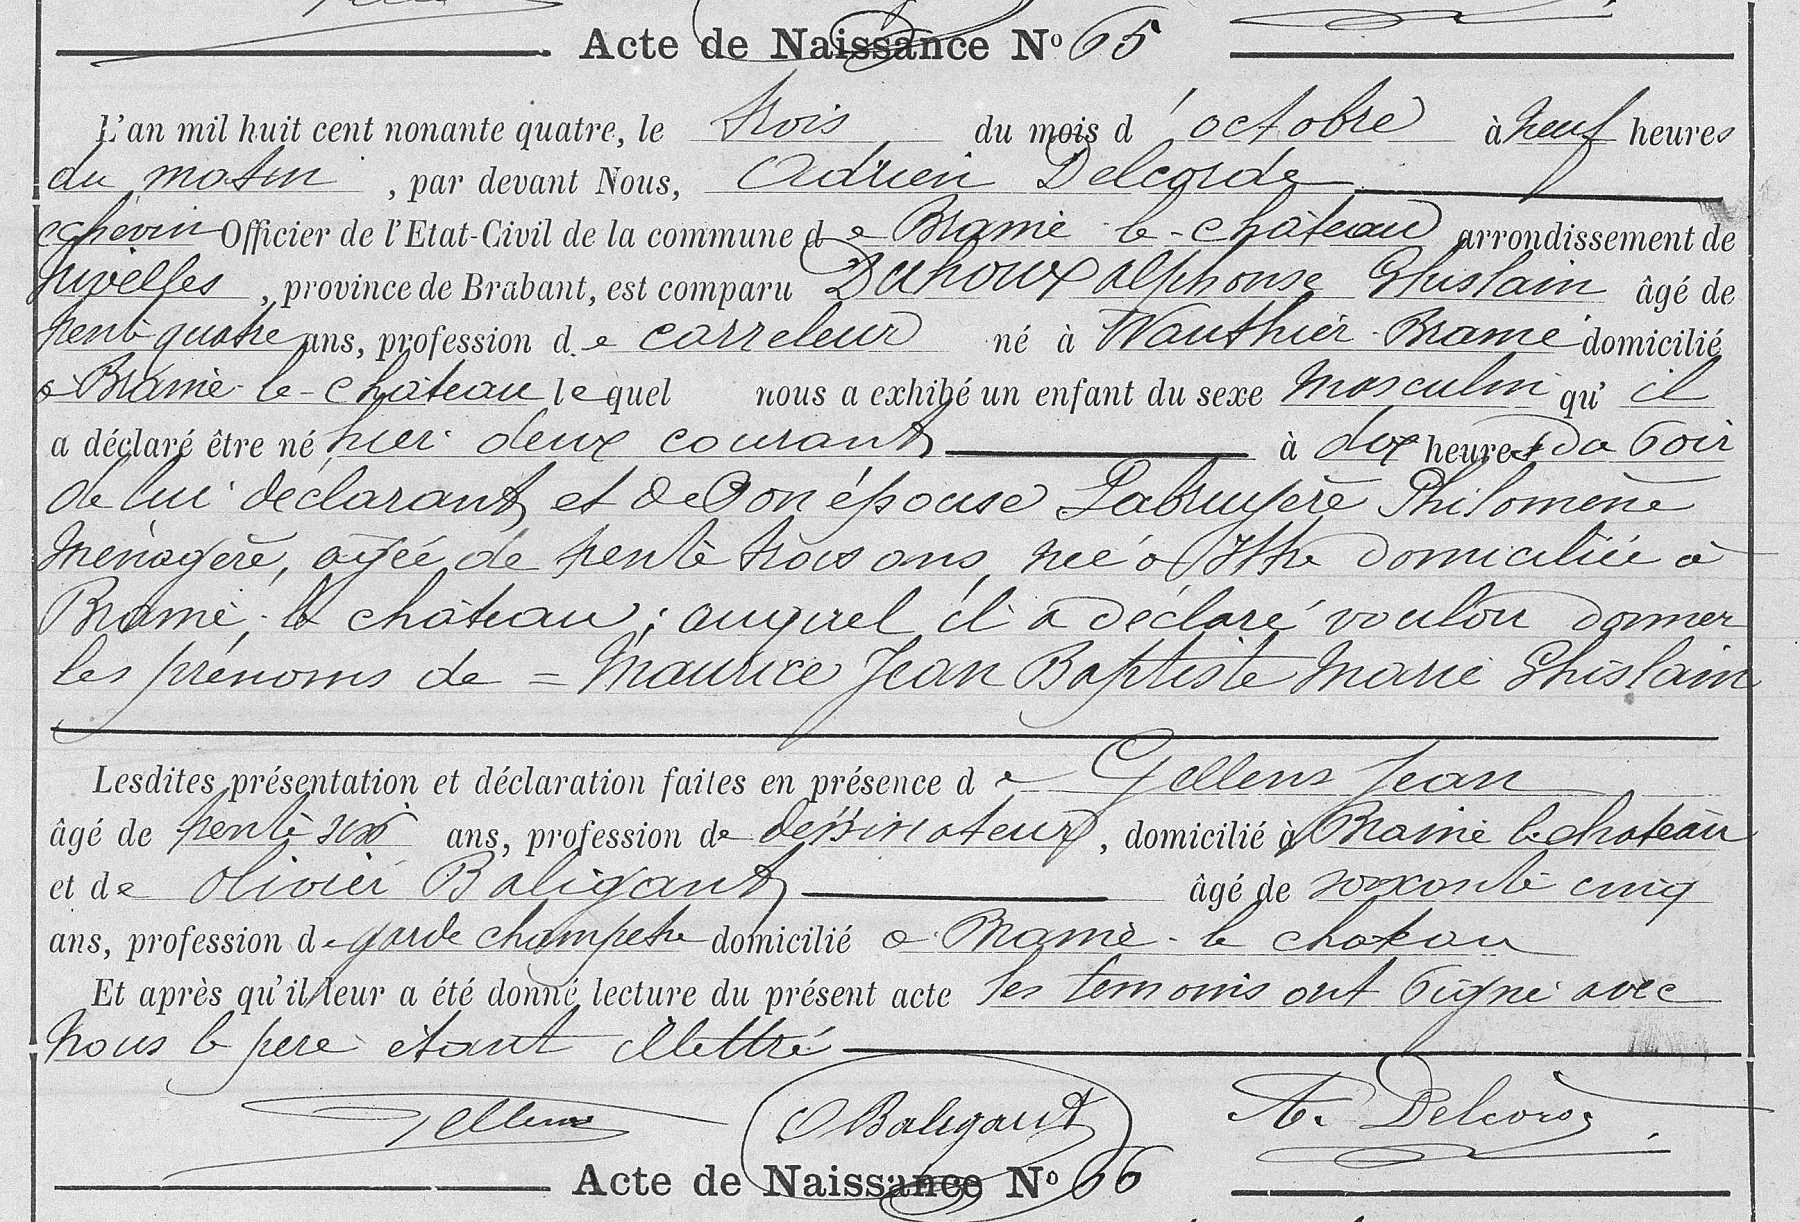 Acte de Naissance Nº 65
L'an mil huit cent nonante quatre, le trois du mois d'octobre à neuf heures
du matin, par devant Nous, Adrien Delcorde
echevin Officier de l'Etat-Civil de la commune de Braine-le-château arrondissement de
Nivelles, province de Brabant, est comparu Duhoux Alphonse Ghislain âgé de
trente quatre ans, profession de carreleur né à Wauthier-Braine domicilié
à Braine-le-château lequel nous a exhibé un enfant du sexe masculin qu'il
a déclaré être né hier deux courant à dix heures du soir
de lui déclarant et de son épouse Labruyère Philomène
ménagère, agée de trente trois ans, née à Ittre domiciliée à
Braine-le château; auquel il a déclaré vouloir donner
les prénoms de = Maurice Jean Baptiste Marie Ghislain
Lesdites présentation et déclaration faites en présence de Gellens Jean
âgé de trente six ans, profession de dessinateur, domicilié à Braine le chateau
et de Olivier Baligant âgé de soixante cinq
ans, profession de garde champetre domicilié à Braine-le chateau
Et après qu'il leur a été donné lecture du présent acte les temoins ont signé avec
Nous le père étant illettré
Gellens O Baligant A. Delcorde
Acte de Naissance Nº 66